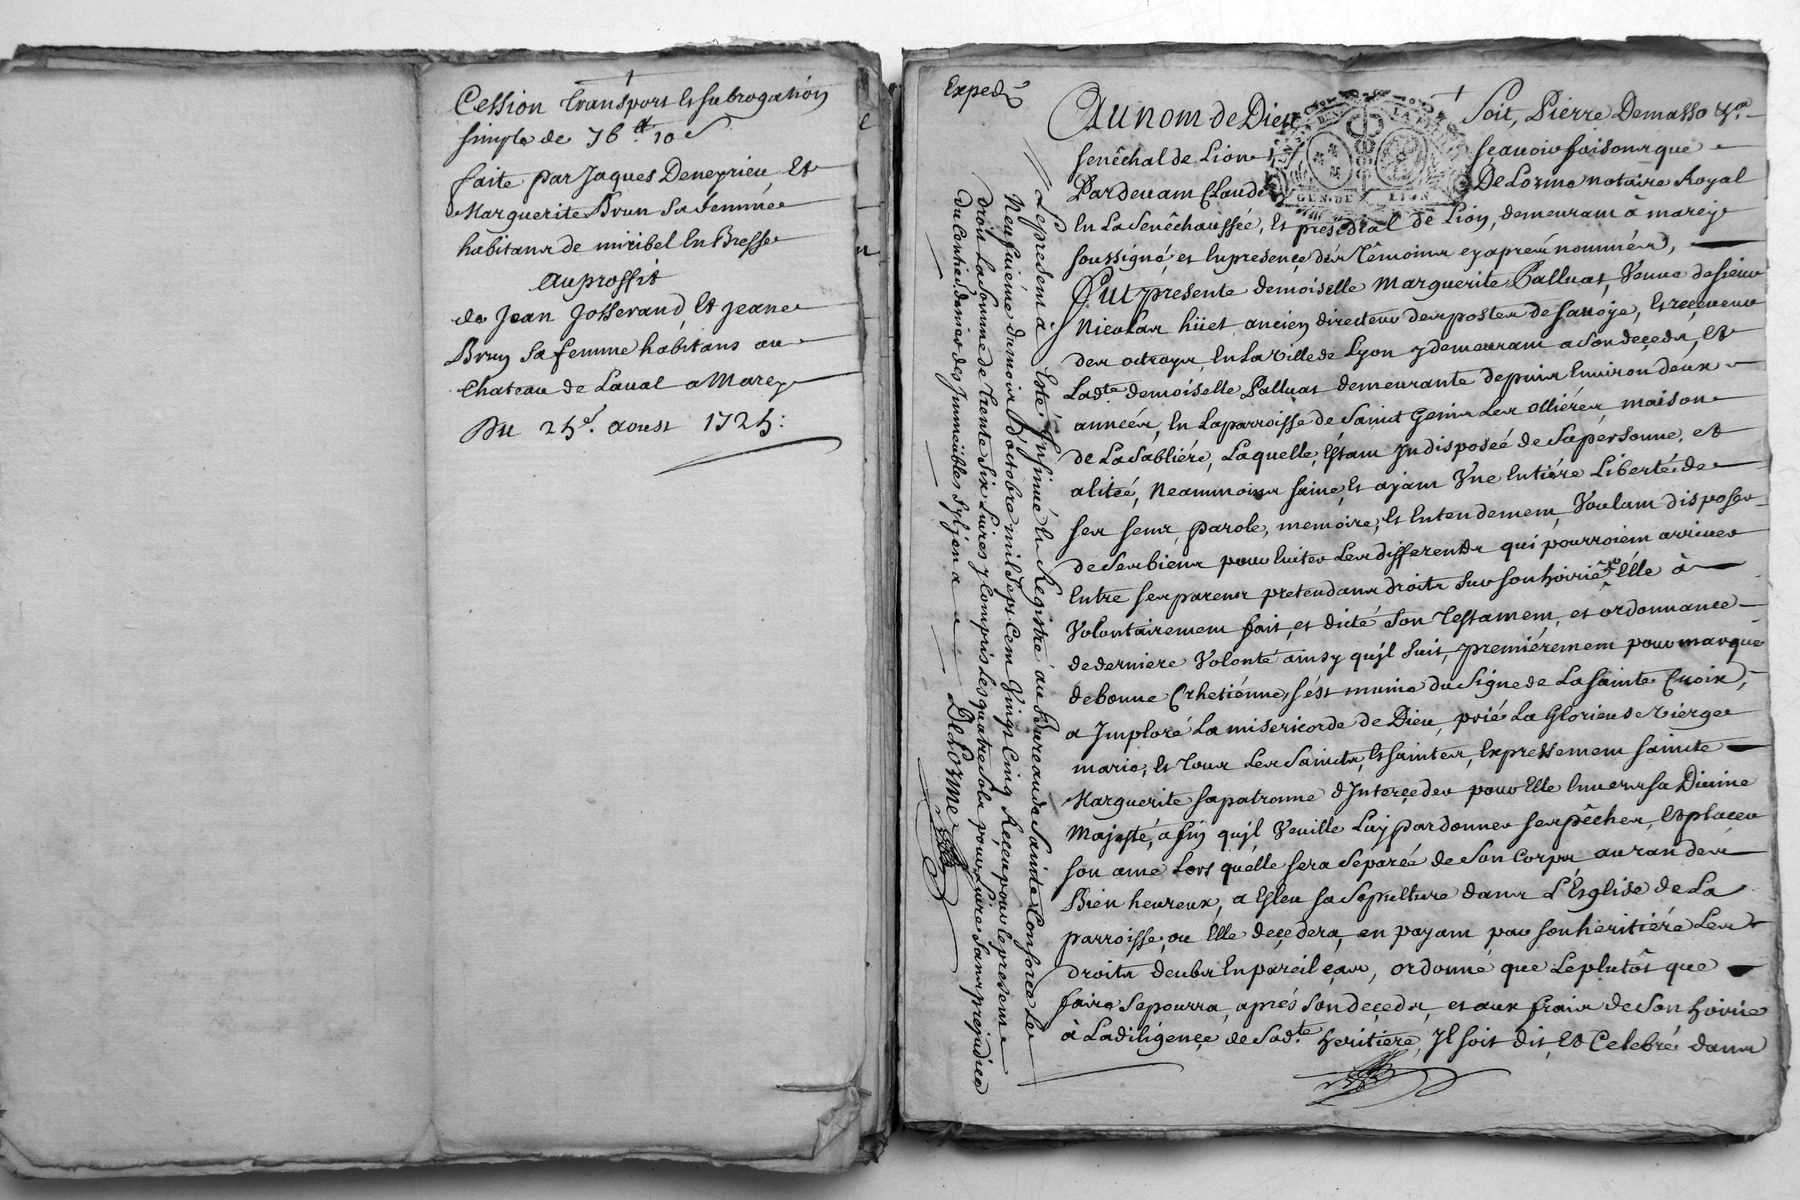 Cession transport et subrogation
simple de 76ᵗᵗ 10 s
faite par Jaques Deneyrieu, Et
Marguerite Brun Sa femme
habitans de miribel En Bresse
Au proffit
de Jean Josserand, Et Jeane
Brun Sa femme habitans au
Chateau de Laval a Marcy
Du 25ᵉ. aoust 1725:
Expedié
Au nom de Dieu Soit, Pierre Demasso &ᵃ
senêchal de Lion sçavoir faisons que
Pardevant Claude DeLorme notaire Royal
En La Senêchaussée, Et présidial de Lion, demeurant à marcy
soussigné, et En presençe dés têmoins cy aprés nommés,
Fut presente demoiselle Marguerite Palluat, Veuve de sieur
Nicolas hüet ancien directeur des postes de savoÿe, Et reçeveur
des octroys, En La Ville de Lyon y demeurant a Son deçeds, Et
Ladᵗᵉ demoiselle Palluat demeurante depuis Environ deux
années, En La parroisse de Saint Genis Les Olliéres, maison
de La Sabliére, Laquelle Estant Indisposeé de Sa personne, et
aliteé, Neammoins saine, Et ajant Vne Entiére Liberté de
ses sens, parole, memoire, Et Entendement, Voulant disposer
de Ses biens pour Eviter Les differents qui pourroient arriver
Entre ses parens pretendans droits Sur Son hoirie, Elle à
Volontairement fait, et dicté Son Testament, et ordonnance
de derniere Volonté ainsy qu'jl Suit, premiérement pour marque
de bonne Crhetiénne, s'ést munie du Signe de La Sainte Croix,
a Imploré La misericorde de Dieu, prié La Glorieuse Vierge
marie, Et Tous Les Saincts, Et Saintes, Expressement Saincte
Marguerite sa patronne d'Interçeder pour Elle Envers sa Divine
Majesté, afin qu'jl Veuille Luy pardonner ses pêches, Et placer
son ame Lors qu'elle sera Separée de Son Corps au ran des
Bien heureux, a Esleu sa Sepulture dans L'Esglise de La
parroisse, ou Elle deçedera, en payant par son héritiére Les
droits deubs En pareil cas, ordonné que Le plutôt que
faire Se pourra, aprés Son deçeds, et aux frais de Son hoirie
à La diligençe de Sadᵗᵉ heritiere, Il soit dit, Et Celebré dans
Le present a Esté Insinué és Registre au Bureau de Sainte Consorce Le
Neufvieme du mois d'octobre mil Sept Cent Vingt Cinq, Receu pour le present
droit La Somme de Trente Six Livres y Compris Les quatre Sols pour Livre Sans prejudice
du Centieme denier des Immeubles s'jl j en a
DeLorme